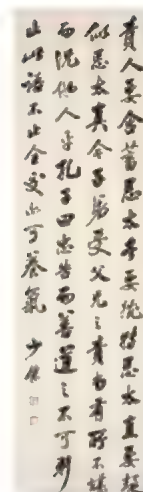 責人要含蓄忌太盡要委婉忌太直要疑
似忌太真今子弟受父兄之責尚有所不堪
而況他人乎孔子曰忠告而善道之不可則
止此語不止全交亦可養氣